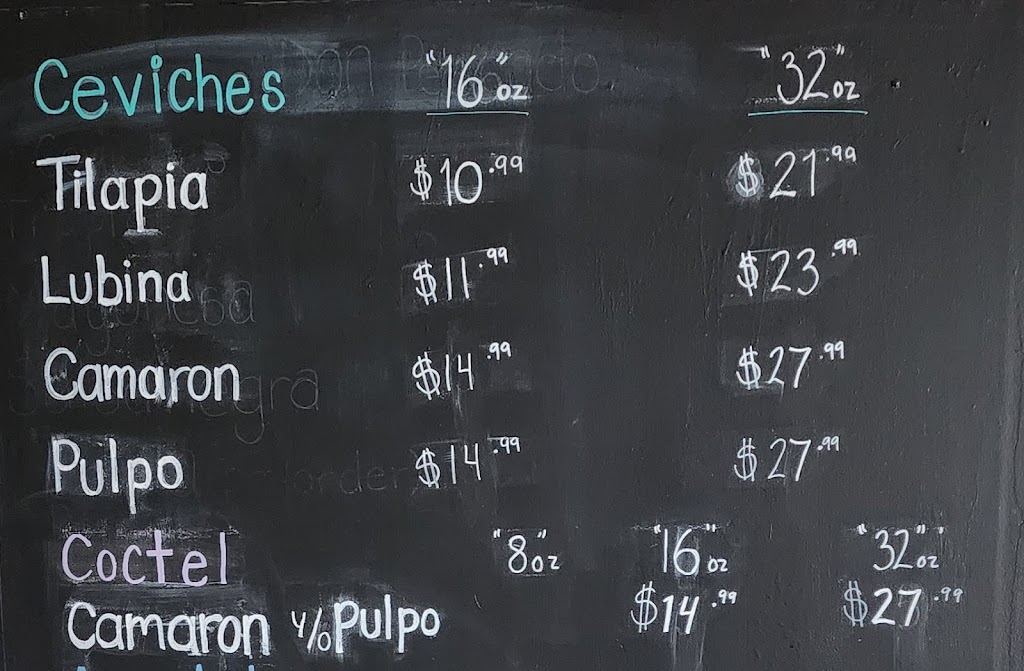 Ceviches "16"oz "32"oz
Tilapia $10.99 $21.99
Lubina $11.99 $23.99
Camaron $14.99 $27.99
Pulpo $14.99 $27.99
Coctel "8"oz "16"oz "32"oz
Camaron y/o Pulpo $14.99 $27.99